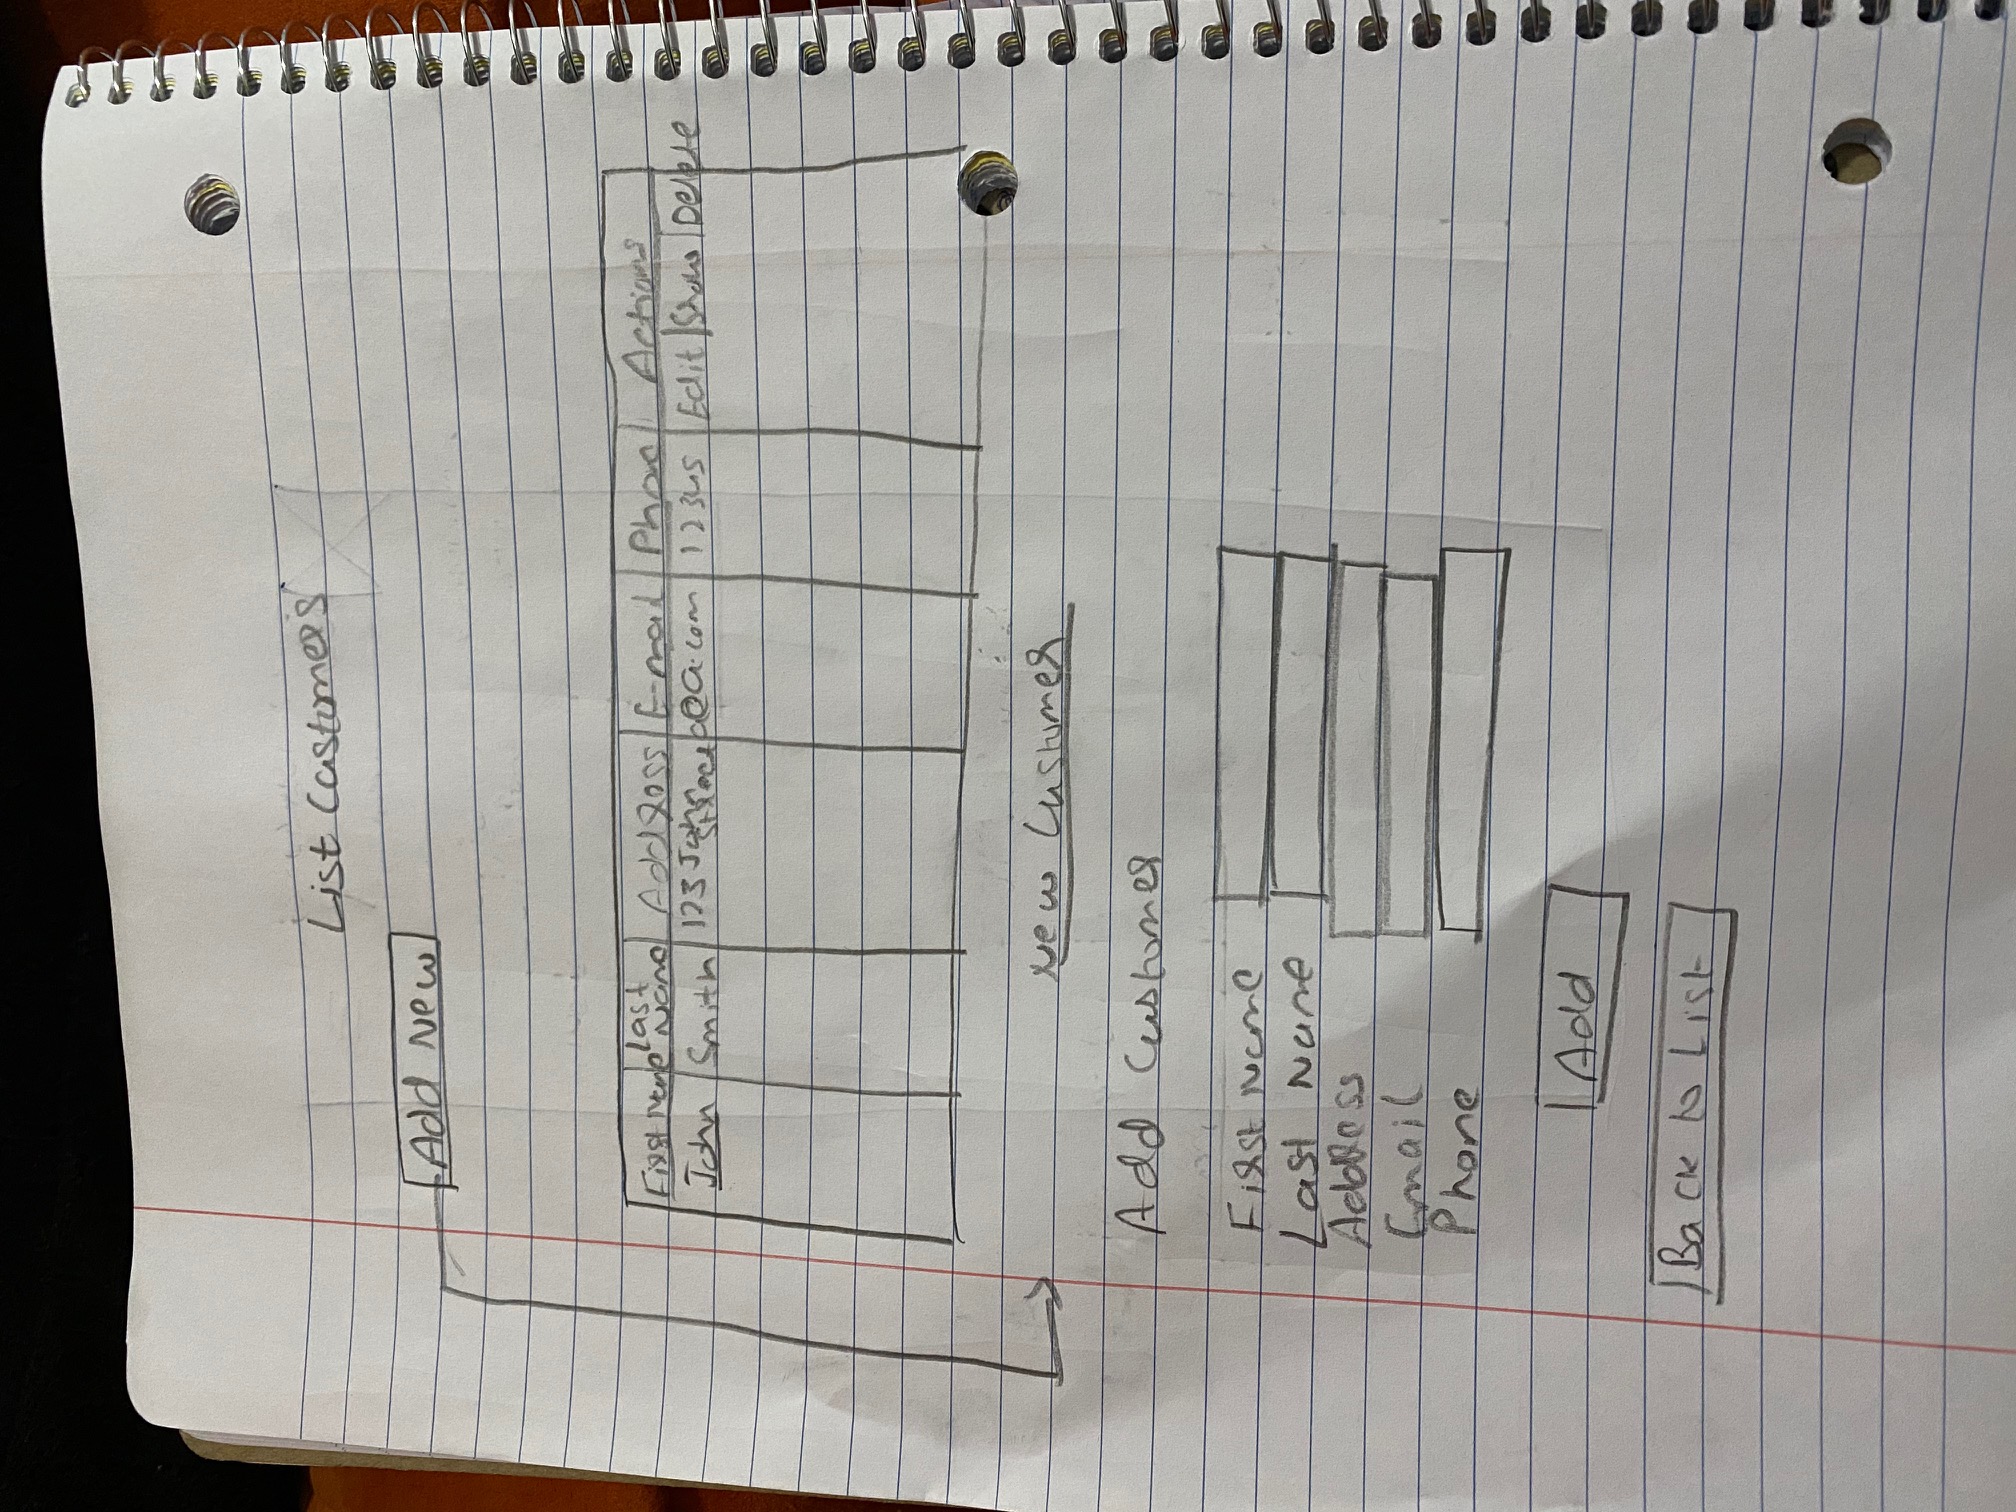 List Customers
Add New
First Name Last Name Address E-mail Phone Actions
John Smith 123 John Street a@a.com 12345 Edit Show Delete
New Customer
Add Customer
First Name
Last Name
Address
Email
Phone
Add
Back to List